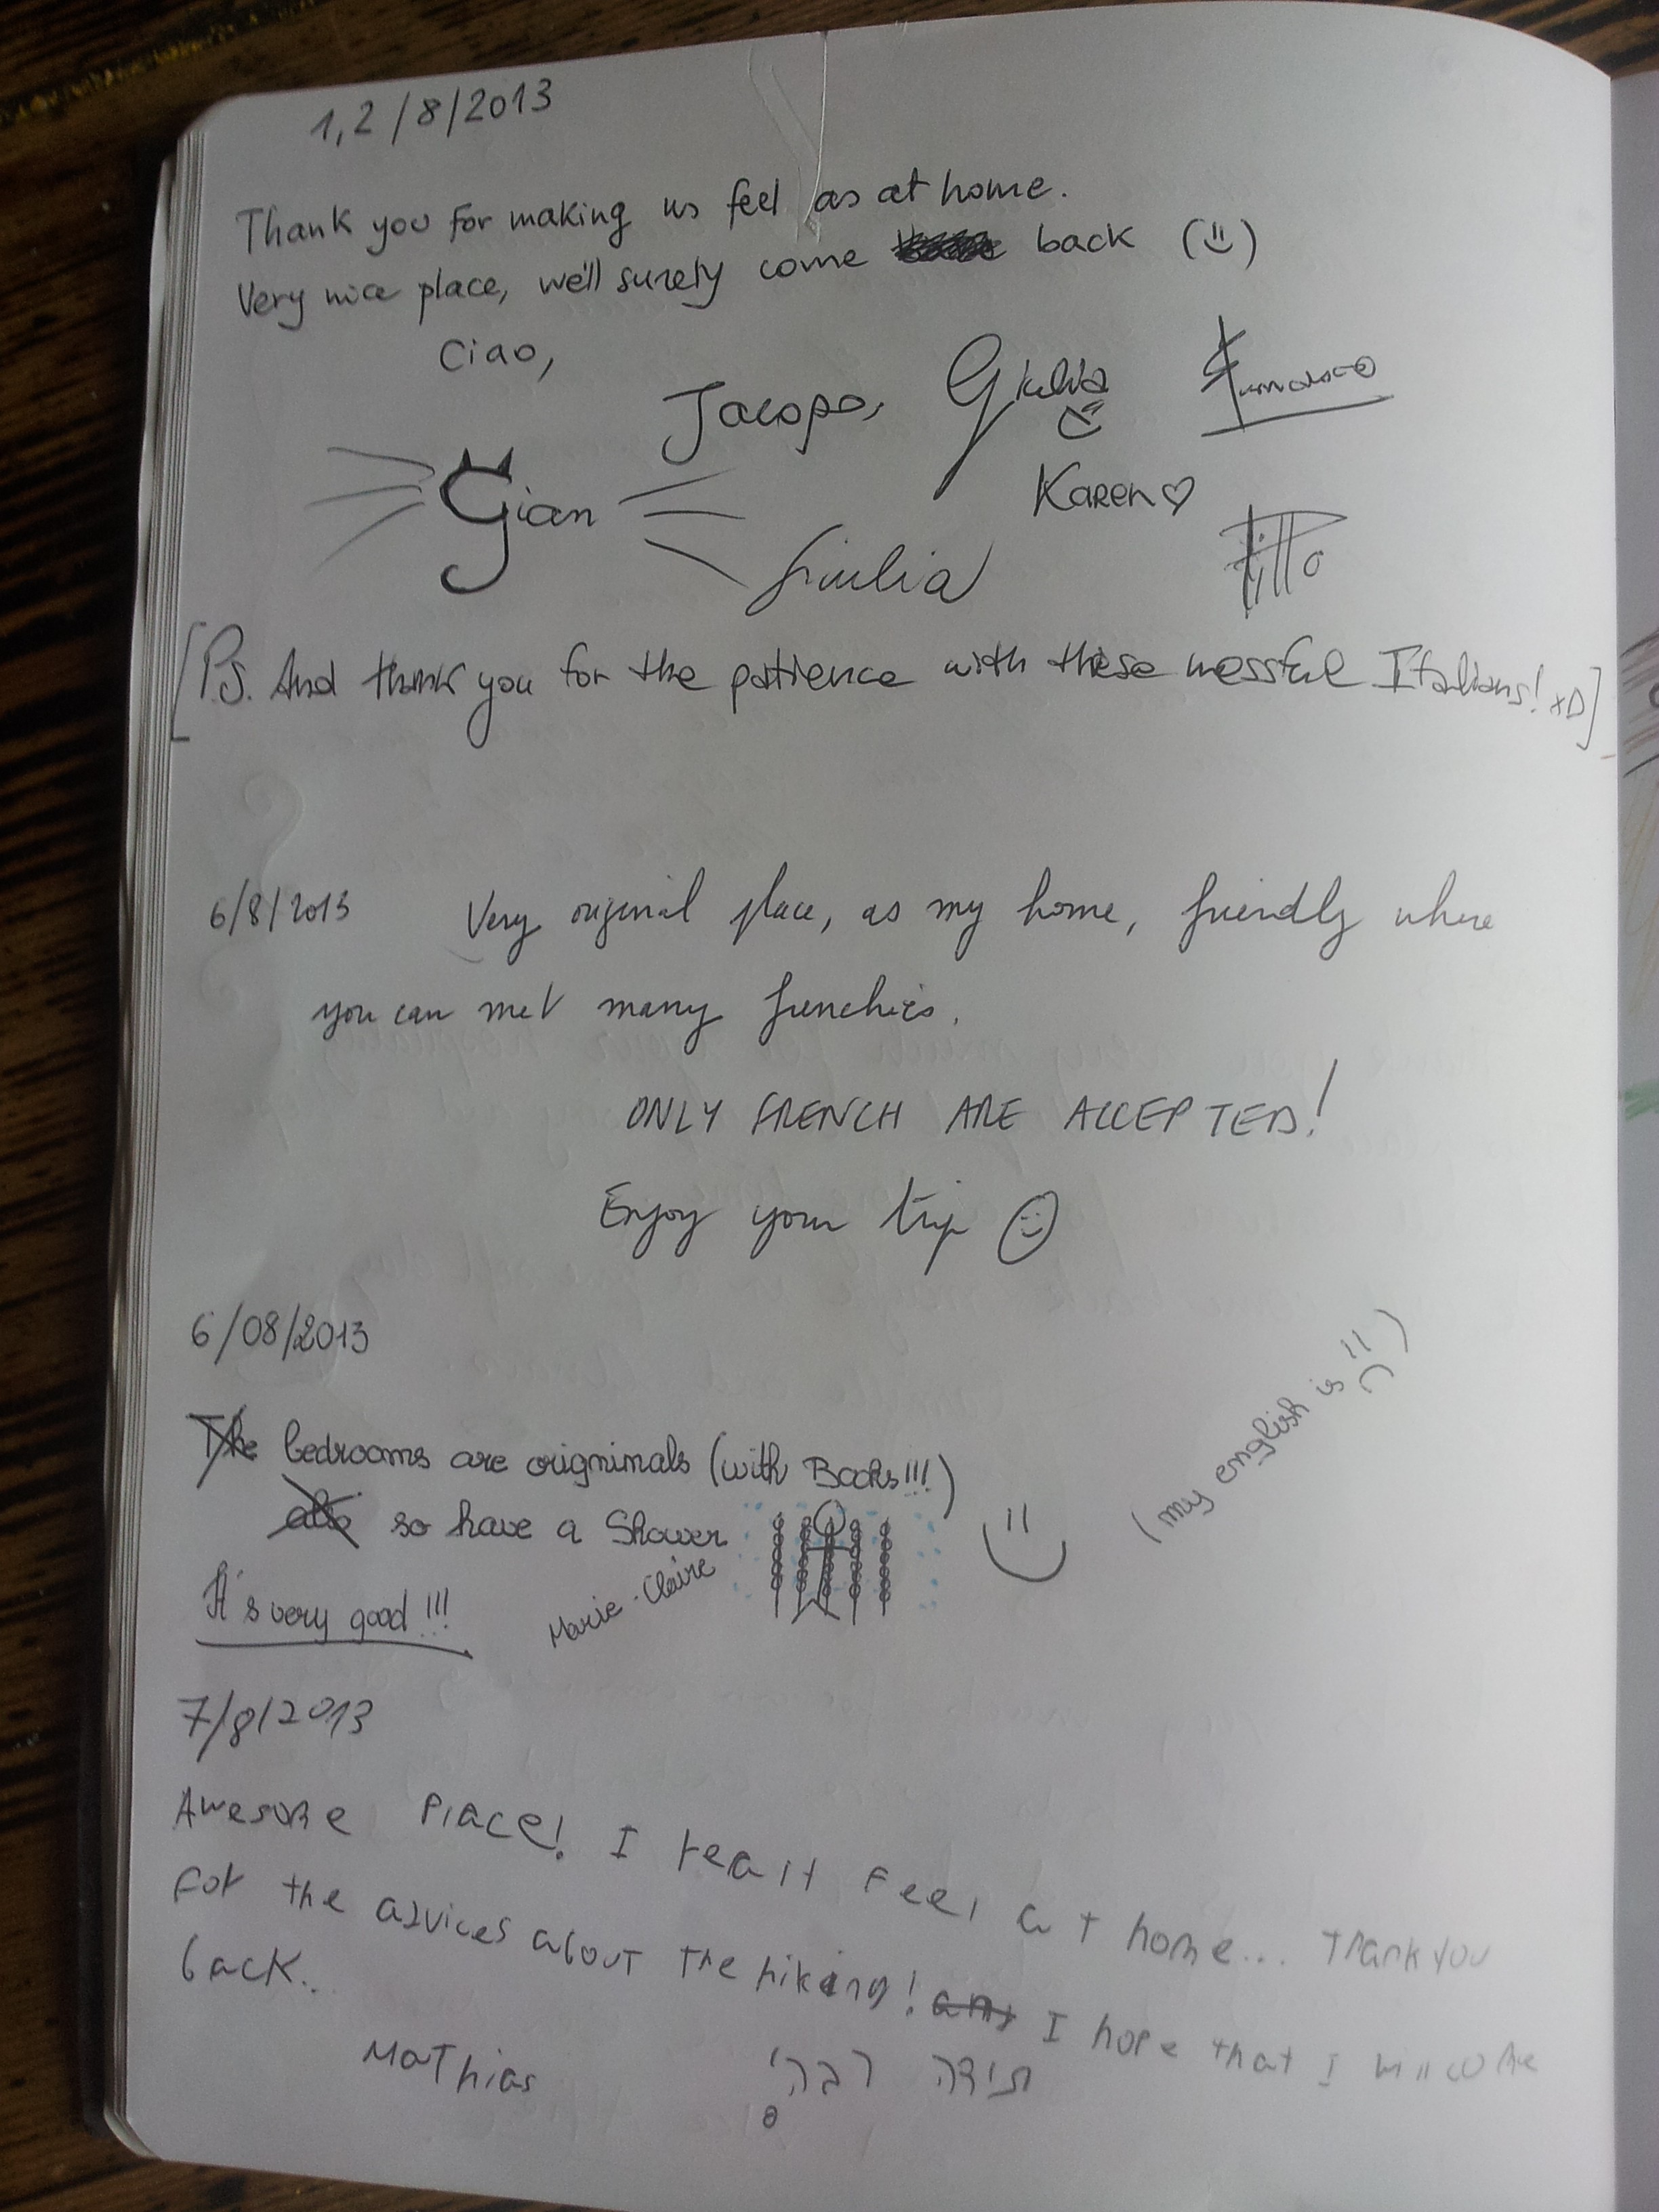 1,2/8/2013
Thank you for making us feel as at home.
Very nice place, we'll surely come back (ü)
Ciao,
Jacopo, Giulia Francesco
Gian Karen♡
Giulia Pitto
[P.S. And thank you for the patience with these messful Italians! xD]
6/8/2013 Very original place, as my home, friendly where
you can met many frenchies.
ONLY FRENCH ARE ACCEPTED!
Enjoy your trip ☺
6/08/2013
The bedrooms are origninals (with Books!!!)
also so have a Shower
(my english is :( )
It's very good!!!
Marie-Claire
7/8/2013
Awesome Place! I realy Feel at home... thank you
For the advices about the hiking! and I hope that I will come
back.
Mathias תודה רבה!